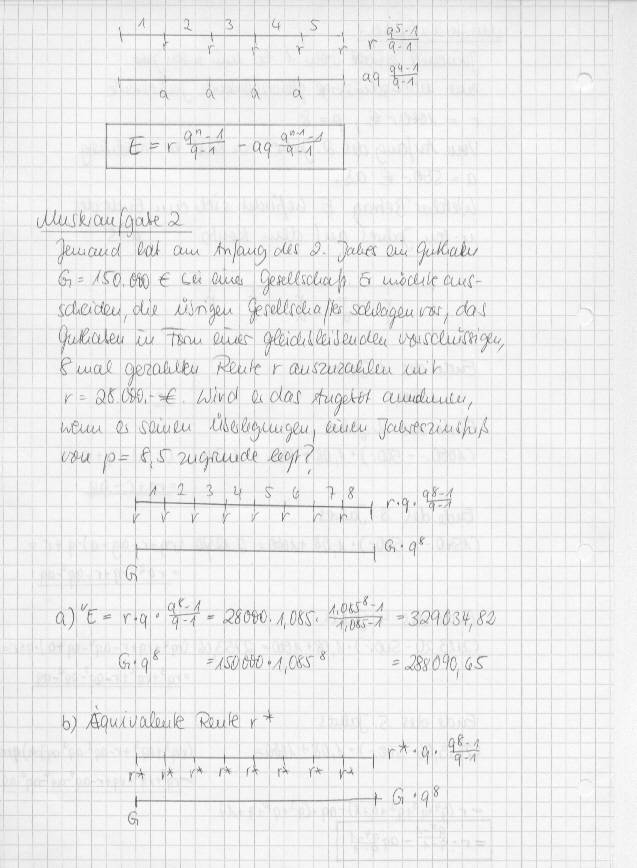 1 2 3 4 5
r r r r r r (q^5-1)/(q-1)
a a a a aq (q^4-1)/(q-1)
E = r (q^n-1)/(q-1) - aq (q^(n-1)-1)/(q-1)
Musteraufgabe 2
Jemand hat am Anfang des 2. Jahres ein Guthaben
G = 150.000 € bei einer Gesellschaft. Er möchte aus-
scheiden, die übrigen Gesellschafter schlagen vor, das
Guthaben in Form einer gleichbleibenden vorschüssigen,
8 mal gezahlten Rente r auszuzahlen mit
r = 28.000,- €. Wird er das Angebot annehmen,
wenn er seinen Überlegungen, einen Jahreszinsfuß
von p = 8,5 zugrunde legt?
1 2 3 4 5 6 7 8
r r r r r r r r r·q· (q^8-1)/(q-1)
G·q^8
G
a) "E = r·q· (q^8-1)/(q-1) = 28000·1,085· (1,085^8-1)/(1,085-1) = 329034,82
G·q^8 = 150000·1,085^8 = 288090,65
b) Äquivalente Rente r*
r* r* r* r* r* r* r* r* r*·q· (q^8-1)/(q-1)
G·q^8
G